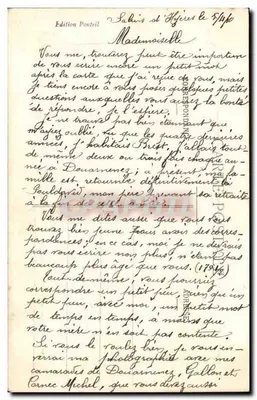 Edition Ponteil
Salins d'Hyères le 5/1/10
Mademoiselle
Vous me trouverez peut-être importun
de vous écrire encore un petit mot
après la carte que j'ai reçue de vous, mais
je tiens encore à vous poser quelques petites
questions auxquelles vous aurez la bonté
de répondre, j'espère.
Je ne trouve pas bien étonnant que
m'ayez oublié, vu que les quatre dernières
années, j'habitais Brest. J'allais tout
de même deux ou trois fois chaque an-
née à Douarnenez ; à présent, ma fa-
mille est retournée définitivement là
Pouldavid, mon père devant sa retraite
à la fin de cette
Vous me dites aussi que vous vous
trouvez bien jeune pour avoir des corres-
pondances ; en ce cas, moi je ne devrais
pas vous écrire non plus, n'étant pas
beaucoup plus âgé que vous.
Tout de même, vous pourriez
correspondre un petit peu, rien que un
petit peu, avec moi, un petit mot
de temps en temps, à moins que
votre mère n'en soit pas contente.
Si vous le voulez bien, je vous en-
verrai ma photographie avec mes
camarades de Douarnenez, Gallon et
Michel, que vous devez aussi